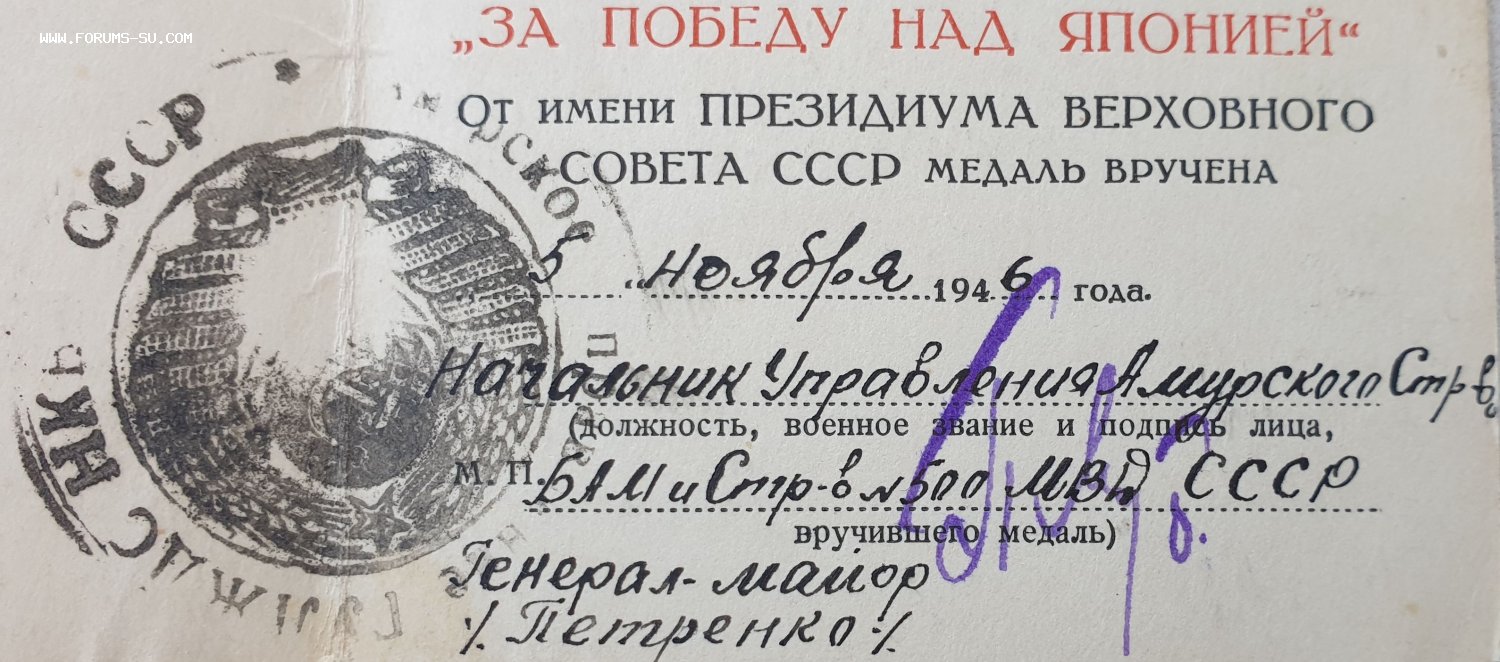 WWW.FORUMS-SU.COM
„ЗА ПОБЕДУ НАД ЯПОНИЕЙ“
От имени ПРЕЗИДИУМА ВЕРХОВНОГО
СОВЕТА СССР медаль вручена
5 „ ноября 1946 года.
Начальник Управления Амурского Стр-в
(должность, военное звание и подпись лица,
М. П. БАМ и Стр-в № 500 МВД СССР
вручившего медаль)
Генерал-майор
/Петренко/
НКВД СССР
ГУЛЖДС